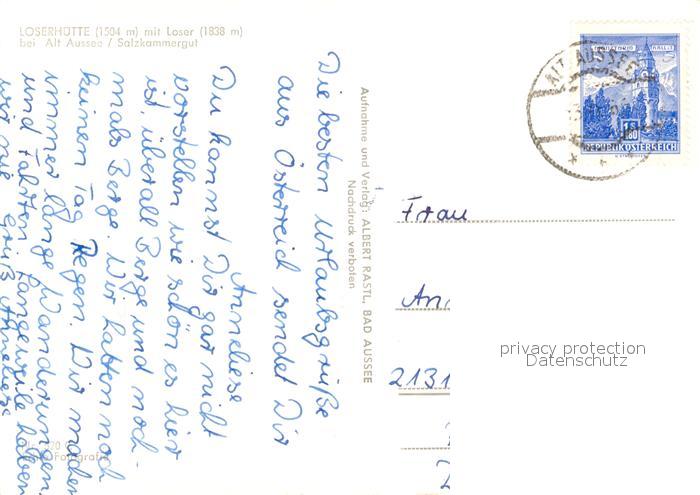 LOSERHÜTTE (1504 m) mit Loser (1838 m)
bei Alt Aussee / Salzkammergut
Die besten Urlaubsgrüße
aus Österreich sendet Dir
Anneliese
Du kannst Dir gar nicht
vorstellen wie schön es hier
ist, überall Berge und noch-
mals Berge. Wir hatten noch
keinen Tag Regen. Wir machen
immer lange Wanderungen
und Fahrten. Langeweile haben
wir nie Gruß Anneliese
Aufnahme und Verlag: ALBERT RASTL, BAD AUSSEE
Nachdruck verboten
ALT AUSSEE
S 1.80
REPUBLIK ÖSTERREICH
Frau
An
2131
privacy protection
Datenschutz